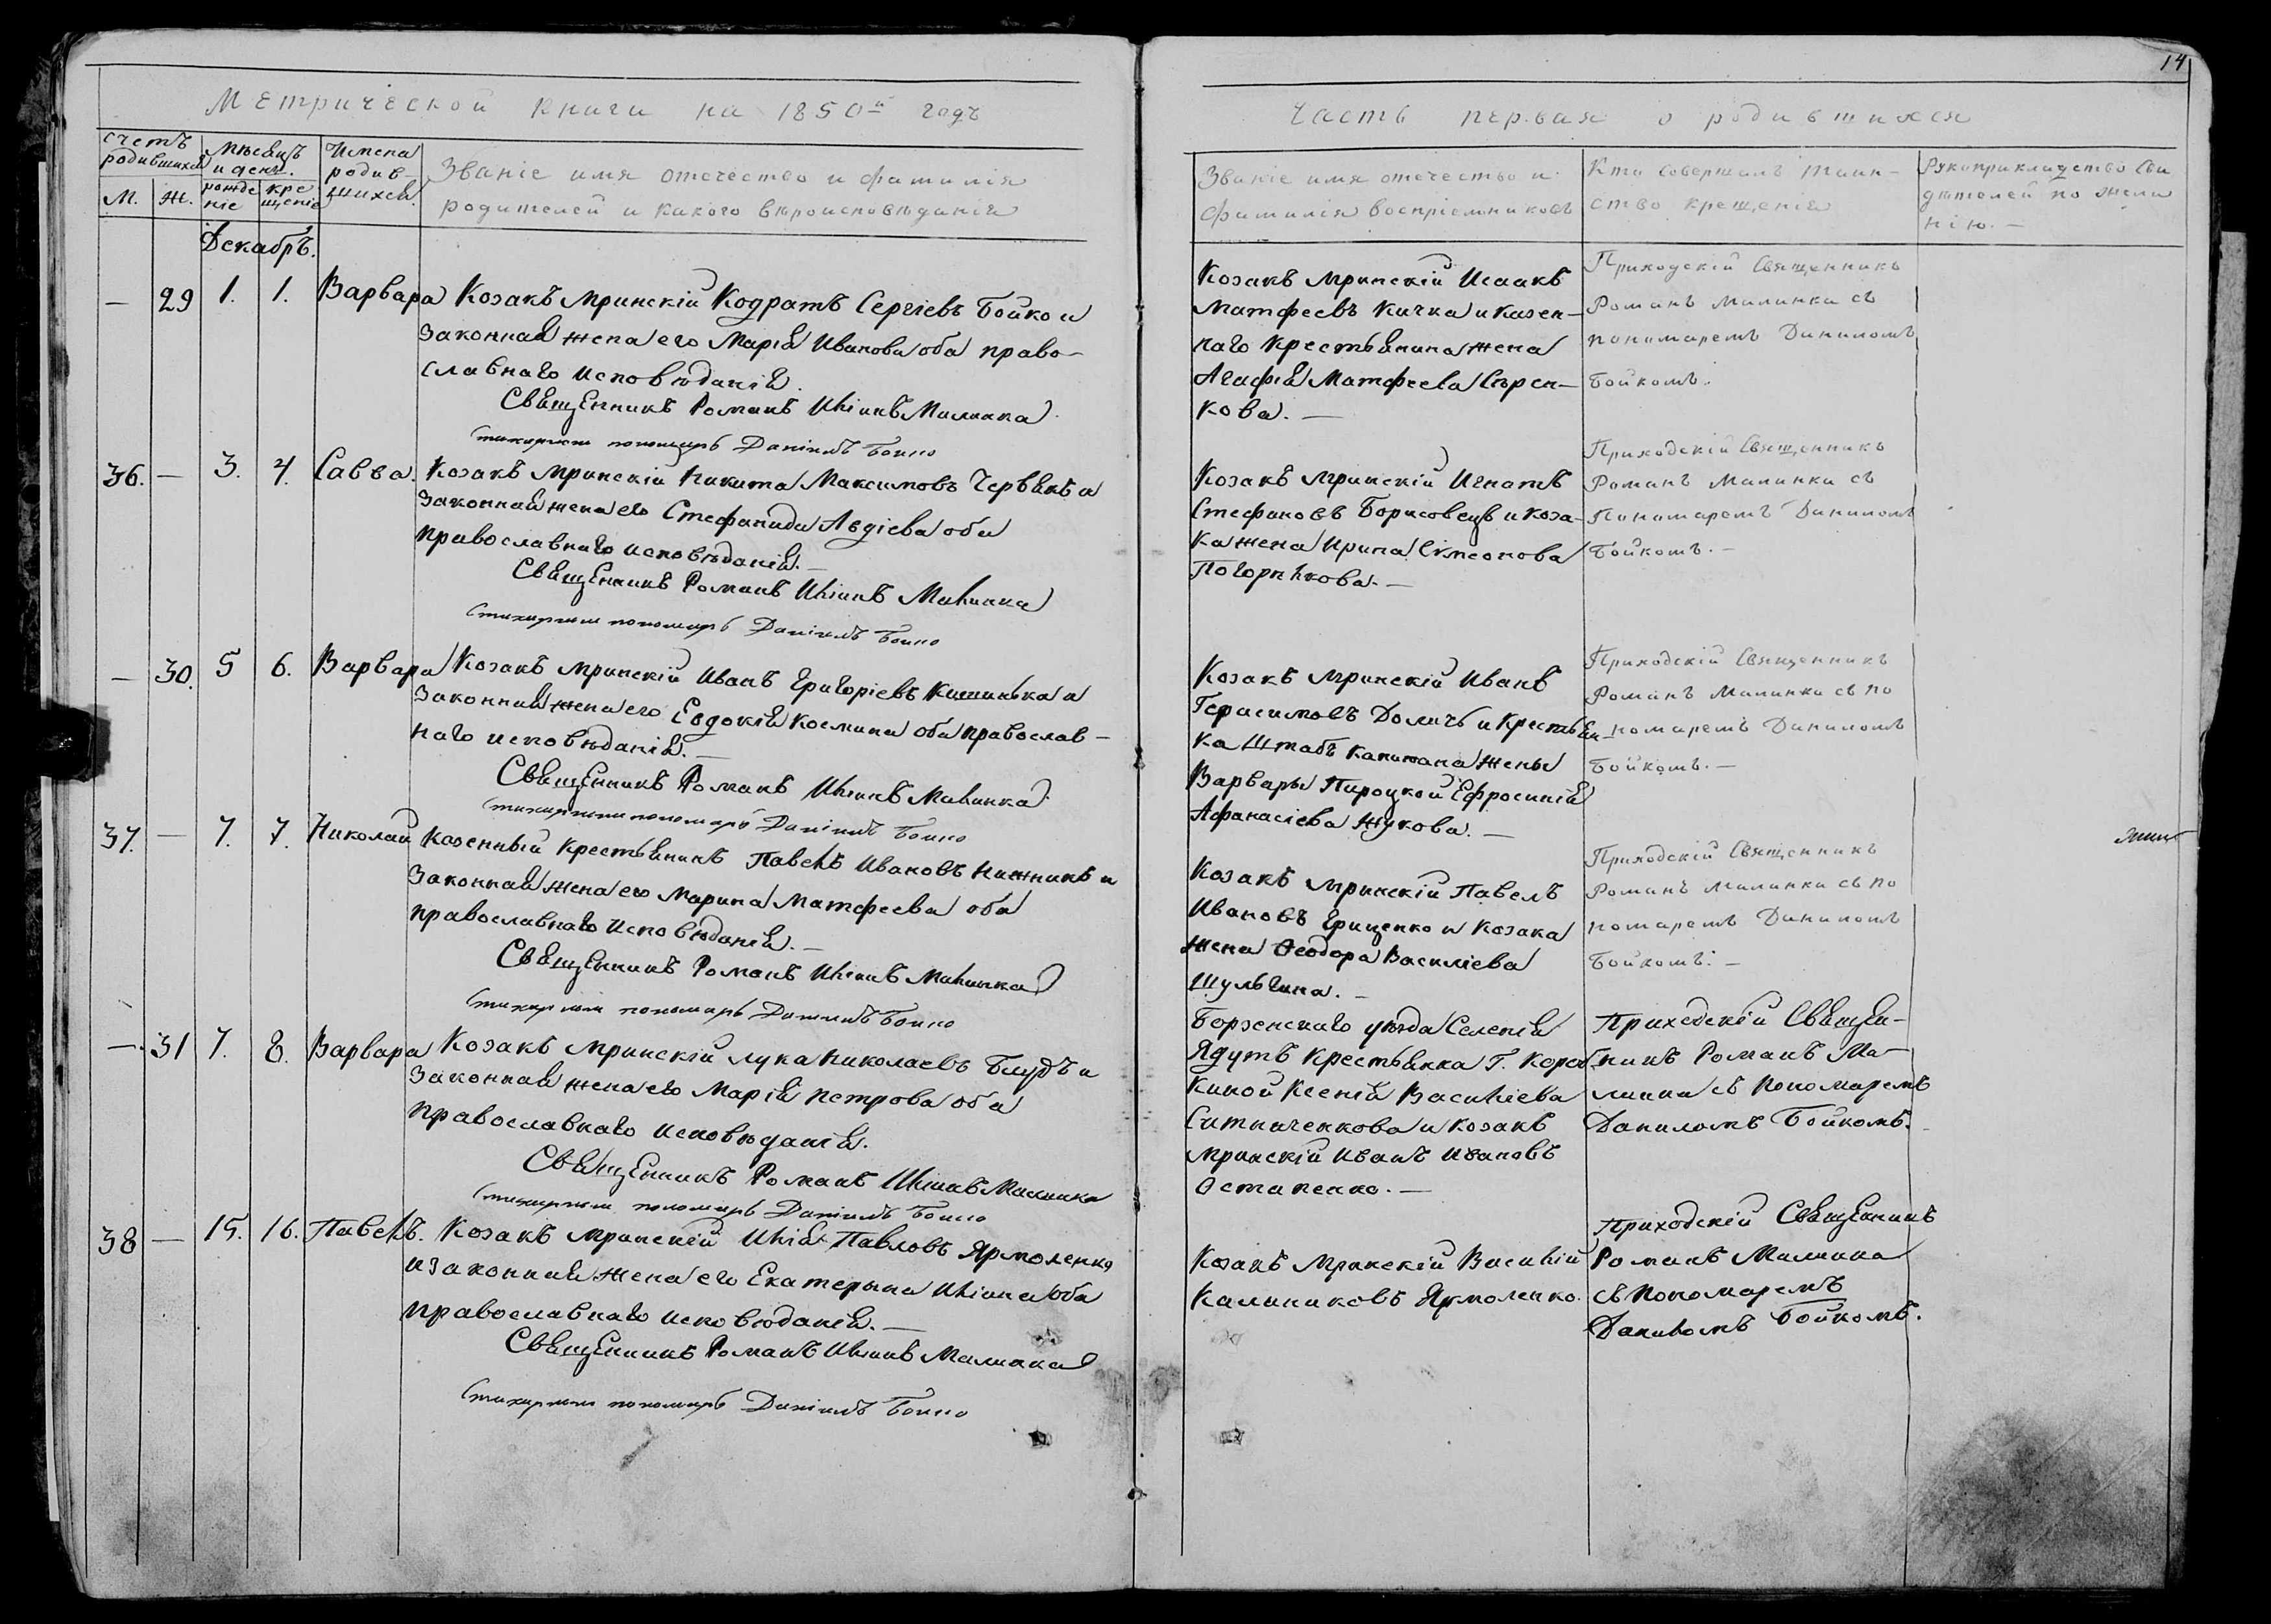 14
Метрической книги на 1850й годъ
Часть первая о родившихся
Счетъ родившихся
М. Ж.
Мѣсяцъ и день.
рожденіе крещеніе
Имена родившихся.
Званіе имя отечество и фамилія
родителей и какого вѣроисповѣданія
Званіе имя отечество и
фамилія воспріемниковъ
Кто совершалъ таин-
ство крещенія
Рукоприкладство сви
дѣтелей по жела
нію. —
Декабрь.
— 29 1. 1. Варвара Козакъ мринскій Кодратъ Сергіевъ Бойко и
законная жена его Марія Иванова оба право-
славнаго исповѣданія.
Священникъ Романъ Иліинъ Малинка
Стихарный пономарь Даніилъ Бойко
Козакъ мринскій Исаакъ
Матфеевъ Кичка и казен-
наго крестьянина жена
Агафія Матфеева
кова. —
Приходскій Священникъ
Романъ Малинка съ
пономаремъ Даниломъ
Бойкомъ.
36. — 3. 4. Савва. Козакъ мринскій Никита Максимовъ Червякъ и
законная жена его Стефанида Авдіева оба
православнаго исповѣданія. —
Священникъ Романъ Иліинъ Малинка
Стихарный пономарь Даніилъ Бойко
Козакъ мринскій Игнатъ
Стефановъ Борисовецъ и коза-
ка жена Ирина Симеонова
Погорѣлкова. —
Приходскій Священникъ
Романъ Малинка съ
Пономаремъ Даниломъ
Бойкомъ. —
— 30. 5 6. Варвара Козакъ мринскій Иванъ Григоріевъ Кишинька и
законная жена его Евдокія Космина оба православ-
наго исповѣданія. —
Священникъ Романъ Иліинъ Малинка
Стихарный пономарь Даніилъ Бойко
Козакъ мринскій Иванъ
Герасимовъ и крестьян-
ка Штабъ капитана жены
Варвары Пироцкой Ефросинія
Афанасіева Жукова. —
Приходскій Священникъ
Романъ Малинка съ по
номаремъ Даниломъ
Бойкомъ. —
37. — 7. 7. Николай Казенный крестьянинъ Павелъ Ивановъ Нижникъ и
законная жена его Марина Матфеева оба
православнаго исповѣданія. —
Священникъ Романъ Иліинъ Малинка
Стихарный пономарь Даніилъ Бойко
Козакъ мринскій Павелъ
Ивановъ Грищенко и козака
жена Ѳеодора Василіева
Шульгина. —
Приходскій Священникъ
Романъ Малинка съ по
номаремъ Даниломъ
Бойкомъ. —
— 31 7. 8. Варвара Козакъ мринскій Лука Николаевъ и
законная жена его Марія Петрова оба
православнаго исповѣданія.
Священникъ Романъ Иліинъ Малинка
Стихарный пономарь Даніилъ Бойко
Борзенскаго уѣзда Селенія
Ядутъ крестьянка Г.
Ксенія Василіева
Ситниченкова и козакъ
мринскій Иванъ Ивановъ
Остапенко. —
Приходскій Священ-
никъ Романъ Ма-
линка съ пономаремъ
Даниломъ Бойкомъ.
38 — 15. 16. Павелъ. Козакъ мринскій Илія Павловъ Ярмоленко
и законная жена его Екатерына Иліина оба
православнаго исповѣданія. —
Священникъ Романъ Иліинъ Малинка
Стихарный пономарь Даніилъ Бойко
Козакъ мринскій Василій
Калиниковъ Ярмоленко.
Приходскій Священникъ
Романъ Малинка
съ Пономаремъ
Даниломъ Бойкомъ.